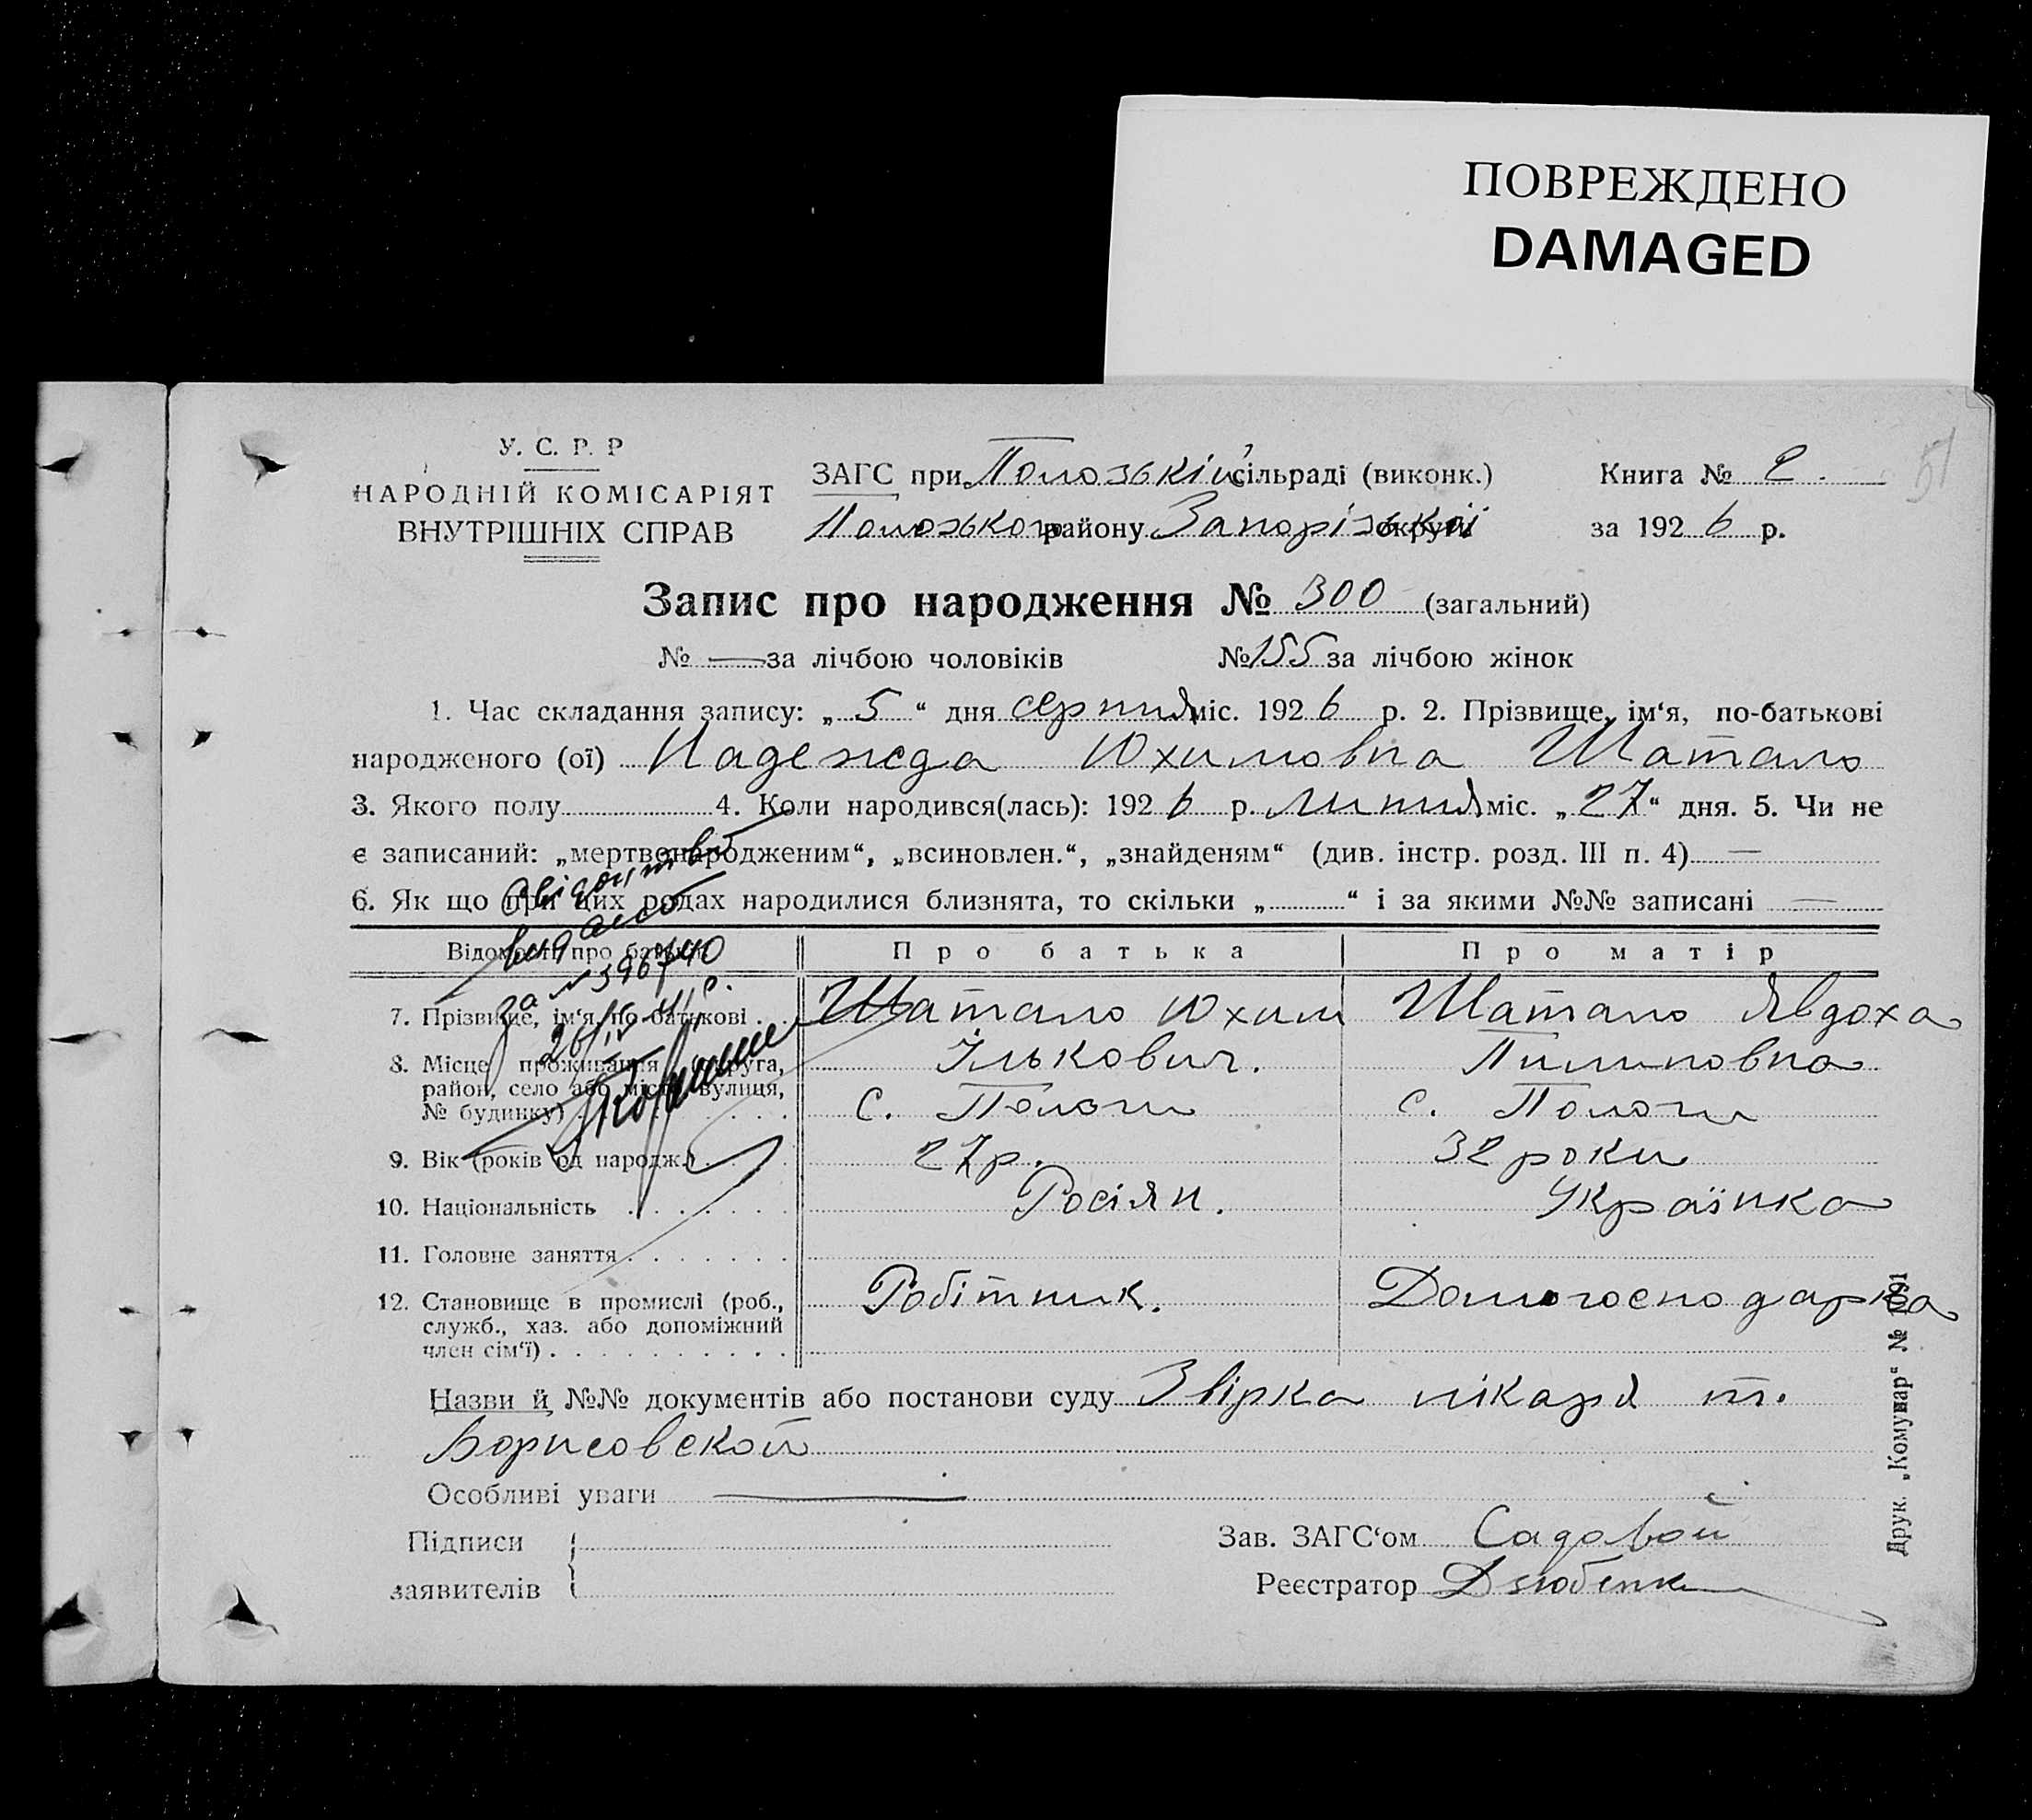 ПОВРЕЖДЕНО
DAMAGED
У. С. Р. Р
НАРОДНІЙ КОМІСАРІЯТ
ВНУТРІШНІХ СПРАВ
ЗАГС при Пологській сільраді (виконк.)
Пологського району Запорізької округи
Книга № 2.
за 1926 р.
51
Запис про народження № 300 (загальний)
№ — за лічбою чоловіків № 155 за лічбою жінок
1. Час складання запису: „ 5 “ дня серпня міс. 1926 р. 2. Прізвище, ім‘я, по-батькові
народженого (ої) Надежда Юхимовна Шатало
3. Якого полу 4. Коли народився(лась): 1926 р. липня міс. „27“ дня. 5. Чи не
є записаний: „мертвонародженим“, „всиновлен.“, „знайденям“ (див. інстр. розд. III п. 4) —
6. Як що при цих родах народилися близнята, то скільки „ “ і за якими №№ записані —
Свідоцтво
видано
за № 396740
26/IV-41 р.
Відомості про батьків Про батька Про матір
7. Прізвище, ім‘я, по-батькові . Шатало Юхим Шатало Явдоха
Ількович. Пилиповна
8. Місце проживання (округа,
район, село або місто, вулиця,
№ будинку) с. Пологи с. Пологи
9. Вік (років од народж.) 27 р. 32 роки
10. Національність Росіян. Українка
11. Головне заняття
12. Становище в промислі (роб.,
служб., хаз. або допоміжний
член сім‘ї) Робітник. Домогосподарка
Назви й №№ документів або постанови суду Звірка лікаря т.
Борисовской
Особливі уваги —
Підписи
заявителів
Зав. ЗАГС‘ом Садовой
Реєстратор Дзюбенк
Друк. „Комунар“ №